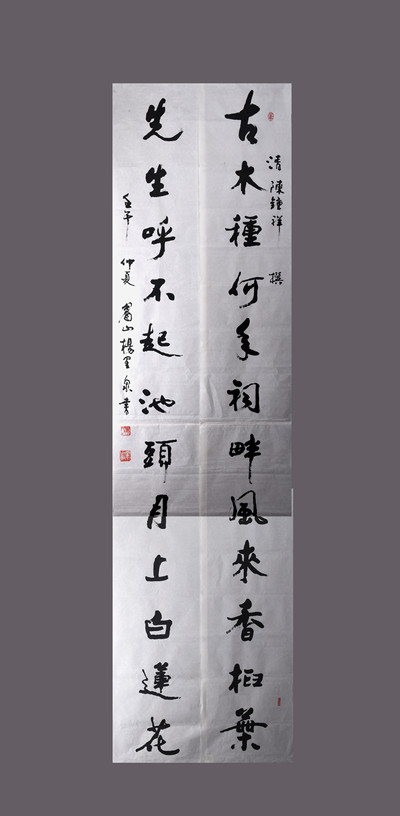 清 陳鍾祥 撰
古木種何年祠畔風來香葉
先生呼不起池頭月上白蓮花
壬午 仲夏 山楊泉書